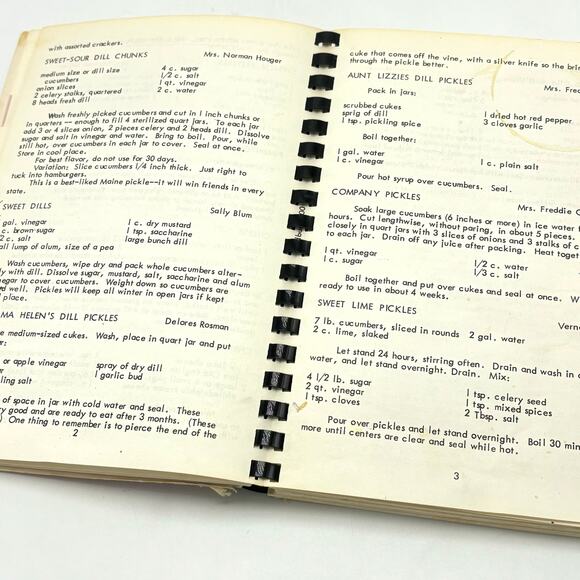 with assorted crackers.
SWEET-SOUR DILL CHUNKS Mrs. Norman Houger
medium size or dill size 4 c. sugar
cucumbers 1/2 c. salt
onion slices 1 qt. vinegar
2 celery stalks, quartered 2 c. water
8 heads fresh dill
Wash freshly picked cucumbers and cut in 1 inch chunks or
in quarters — enough to fill 4 sterilized quart jars. To each jar
add 3 or 4 slices onion, 2 pieces celery and 2 heads dill. Dissolve
sugar and salt in vinegar and water. Bring to boil. Pour, while
still hot, over cucumbers in each jar to cover. Seal at once.
Store in cool place.
For best flavor, do not use for 30 days.
Variation: Slice cucumbers 1/4 inch thick. Just right to
tuck into hamburgers.
This is a best-liked Maine pickle—it will win friends in every
state.
SWEET DILLS Sally Blum
gal. vinegar 1 c. dry mustard
c. brown sugar 1 tsp. saccharine
c. salt large bunch dill
all lump of alum, size of a pea
Wash cucumbers, wipe dry and pack whole cucumbers alter-
ly with dill. Dissolve sugar, mustard, salt, saccharine and alum
egar to cover cucumbers. Weight down so cucumbers are
d well. Pickles will keep all winter in open jars if kept
place.
MA HELEN'S DILL PICKLES Delores Rosman
e medium-sized cukes. Wash, place in quart jar and put
r:
or apple vinegar spray of dry dill
1 garlic bud
ling salt
of space in jar with cold water and seal. These
ry good and are ready to eat after 3 months. (These
) One thing to remember is to pierce the end of the
2
cuke that comes off the vine, with a silver knife so the brin
through the pickle better.
AUNT LIZZIES DILL PICKLES Mrs. Fred
Pack in jars:
scrubbed cukes 1 dried hot red pepper
sprig of dill 3 cloves garlic
1 tsp. pickling spice
Boil together:
1 gal. water 1 c. plain salt
1 c. vinegar
Pour hot syrup over cucumbers. Seal.
COMPANY PICKLES Mrs. Freddie
Soak large cucumbers (6 inches or more) in ice water f
hours. Cut lengthwise, without paring, in about 5 pieces.
closely in quart jars with 3 slices of onions and 3 stalks of c
to each jar. Drain off any juice after packing. Heat togeth
1 qt. vinegar 1/2 c. water
1 c. sugar 1/3 c. salt
Boil together and put over cukes and seal at once. W
ready to use in about 4 weeks.
SWEET LIME PICKLES Vern
7 lb. cucumbers, sliced in rounds 2 gal. water
2 c. lime, slaked
Let stand 24 hours, stirring often. Drain and wash in c
water, and let stand overnight. Drain. Mix:
4 1/2 lb. sugar 1 tsp. celery seed
2 qt. vinegar 1 tsp. mixed spices
1 tsp. cloves 2 Tbsp. salt
Pour over pickles and let stand overnight. Boil 30 min
more until centers are clear and seal while hot.
3